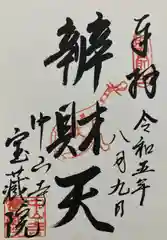 奉拝
令和五年
八月九日
辨財天
中山寺
宝蔵院